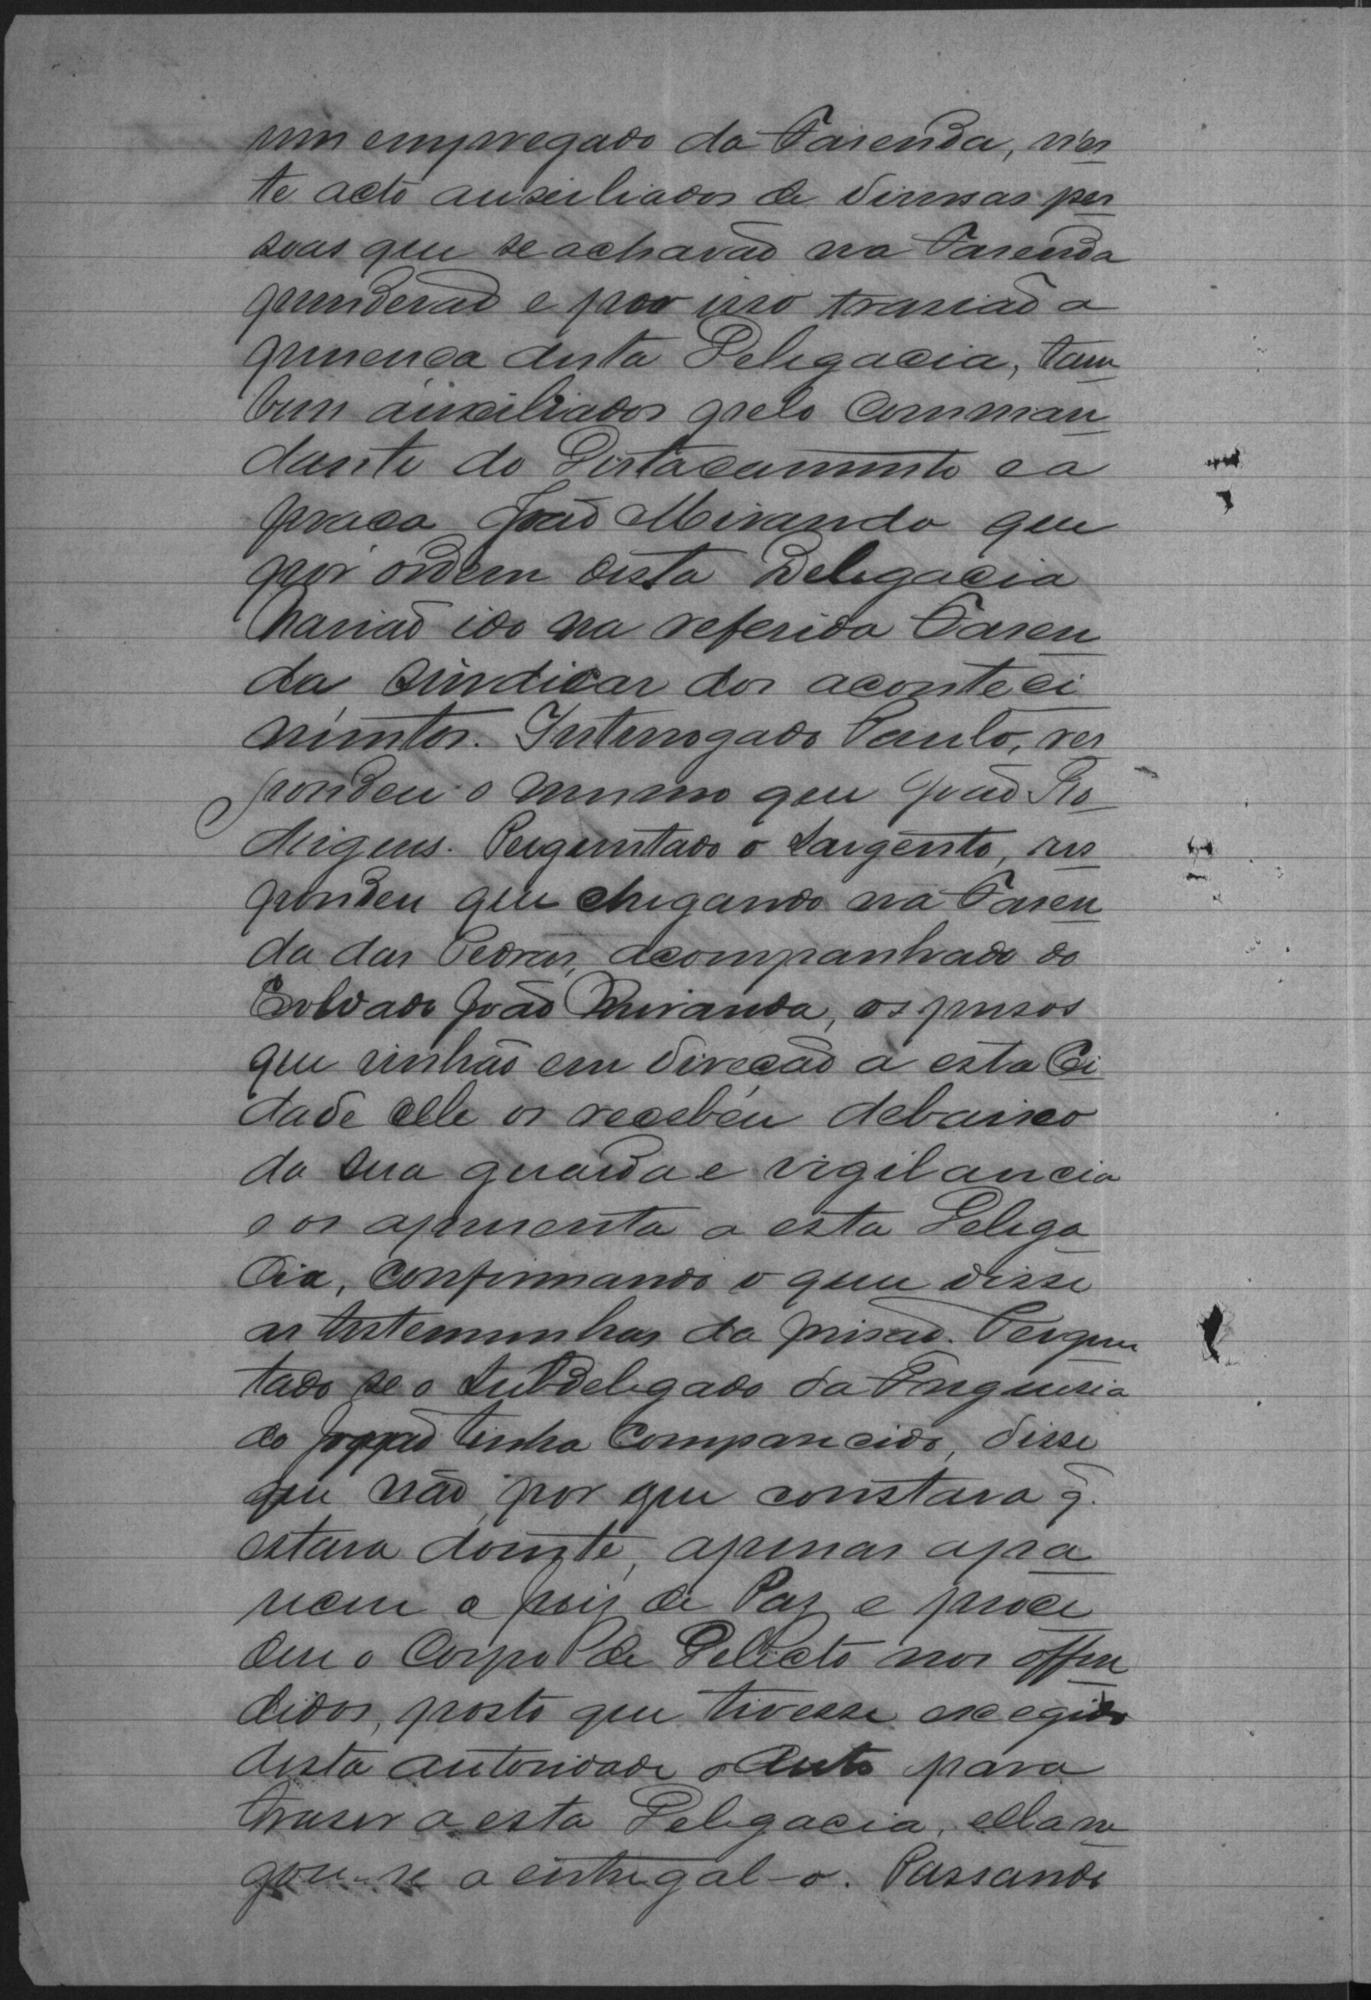 um empregado da Fasenda, n'es
te acto auxiliados de diversas pes
soas que se achavão na Fasenda
prenderão e por isso trasião a
presença desta Delegacia, tam
bem auxiliados pelo Comman
dante do Destacamento e a
praça João Miranda que
por ordem desta Delegacia
havião ido na referida Fasen
da sindicar dos aconteci
mentos. Interrogado Paulo, res
pondeu o mesmo que João Ro
drigues. Perguntado o Sargento, res
pondeu que chegando na Fasen
da das Pedras, acompanhado do
Soldado João Miranda, os presos
que vinhão em direcção a esta Ci
dade elle os recebeu debaixo
da sua guarda e vigilancia
e os apresenta a esta Delega
cia, confirmando o que disse
as testemunhas da prisão. Pergun
tado se o Subdelegado da Freguesia
do tinha comparecido, disse
que não, por que constara q̃.
estava doente, apenas apa
receu o Juiz de Paz e proce
deu o Corpo de Delicto nos offen
didos, posto que tivesse exegido
desta autoridade o Auto para
traser a esta Delegacia, ella ne
gou-se a entregal-o. Passando